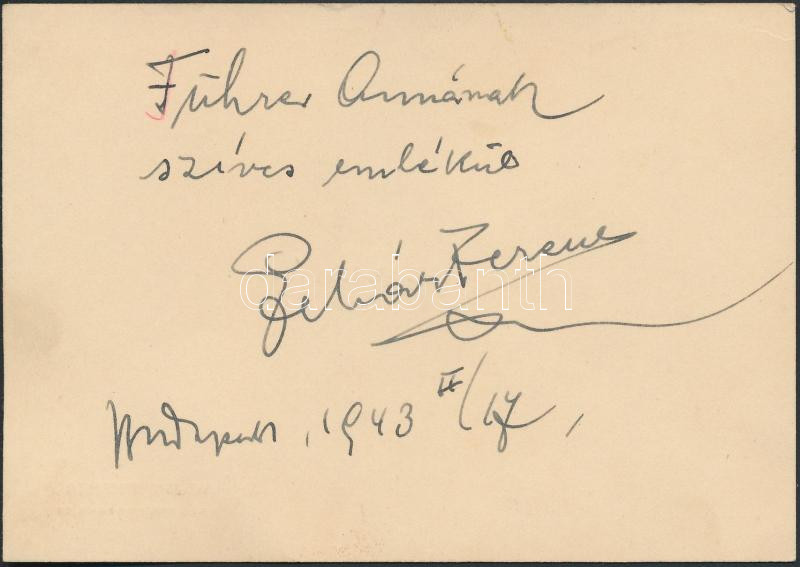 Führer Annának
szíves emlékül
Ferenc
darabanth
Budapest, 1943 II/17,